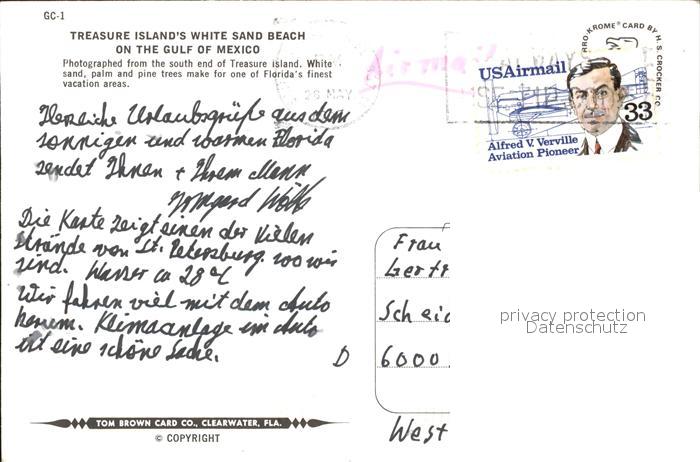 GC-1
TREASURE ISLAND'S WHITE SAND BEACH
ON THE GULF OF MEXICO
Photographed from the south end of Treasure island. White
sand, palm and pine trees make for one of Florida's finest
vacation areas.
Herzliche Urlaubsgrüße aus dem
sonnigen und warmen Florida
sendet Ihnen + Ihrem Mann
Irmgard
Die Karte zeigt einen der vielen
Strände von St. Petersburg. wo wir
sind. Wasser ca 28°C
Wir fahren viel mit dem Auto
herum. Klimaanlage im Auto
ist eine schöne Sache.
TOM BROWN CARD CO., CLEARWATER, FLA.
© COPYRIGHT
Airmail
26 MAY
KROME® CARD BY H. S. CROCKER CO.
USAirmail
33
Alfred V. Verville
Aviation Pioneer
Frau
Gert
Scheid
D 6000
West
privacy protection
Datenschutz